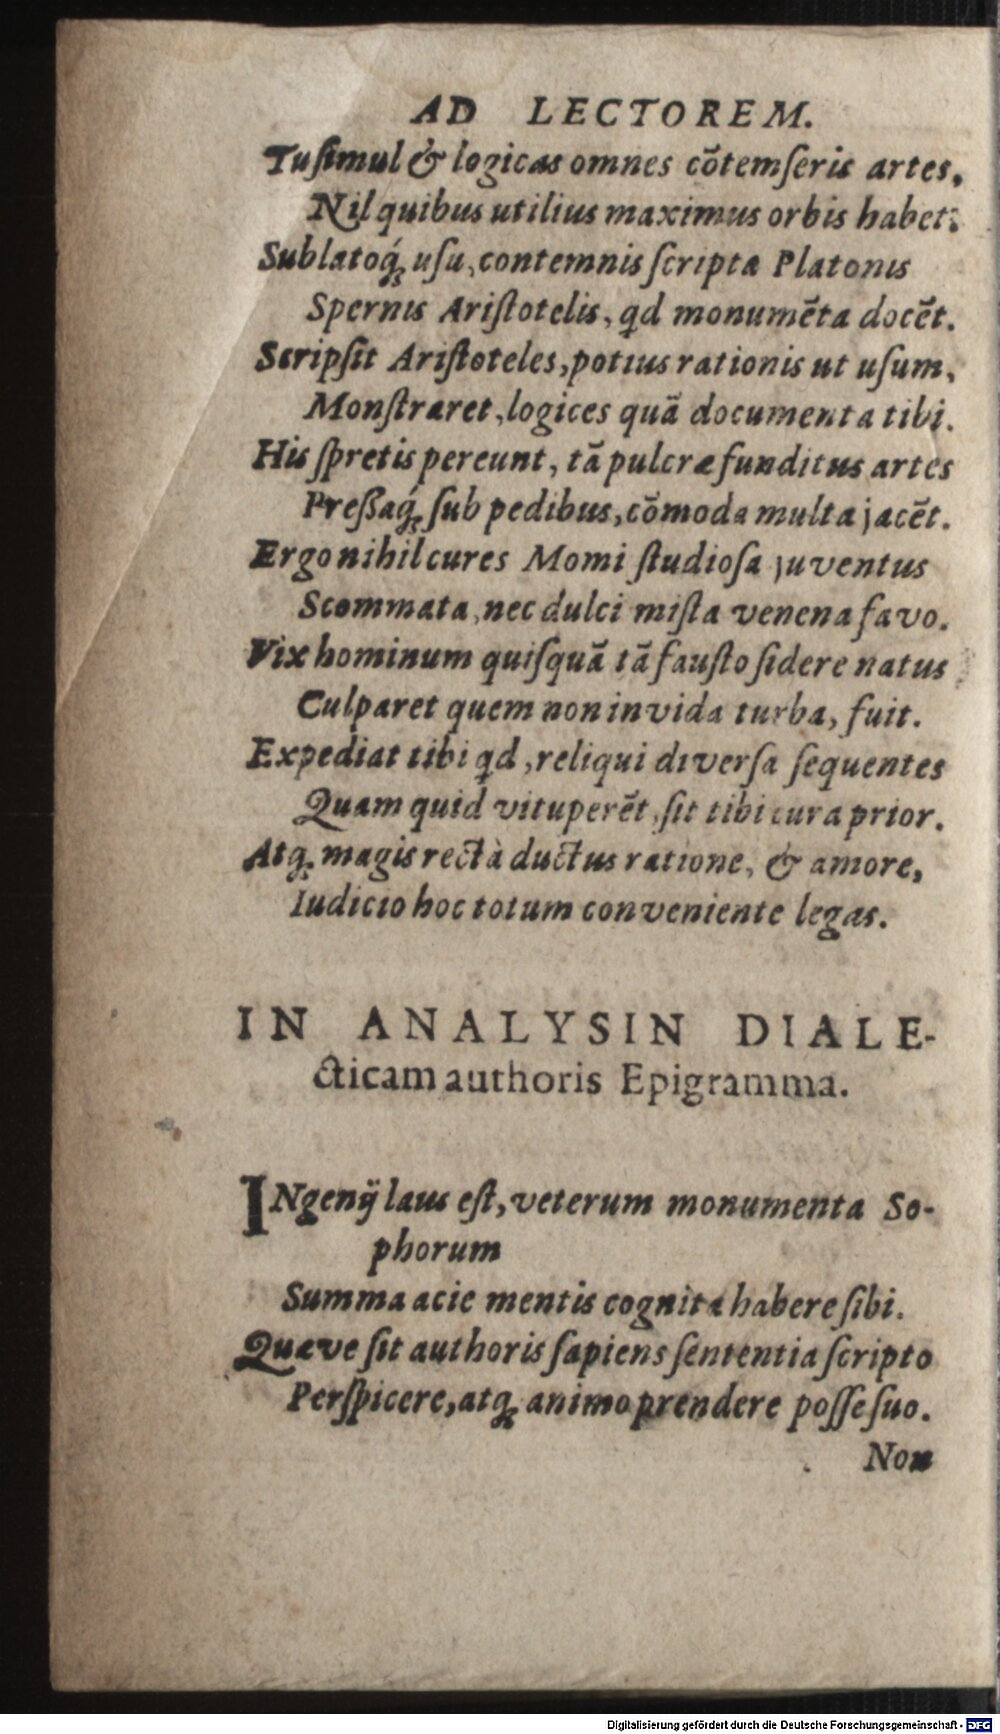 AD LECTOREM.
Tu ſimul & logicas omnes cõtemſeris artes,
Nil quibus utilius maximus orbis habet:
Sublatoq́; uſu, contemnis ſcripta Platonis
Spernis Ariſtotelis, qd monumẽta docẽt.
Scripſit Ariſtoteles, potius rationis ut uſum,
Monſtraret, logices quã documenta tibi.
His ſpretis pereunt, tã pulcræ funditus artes
Preßaq́; ſub pedibus, cõmoda multa jacẽt.
Ergo nihil cures Momi ſtudioſa juventus
Scommata, nec dulci miſta venena favo.
Vix hominum quiſquã tã fauſto ſidere natus
Culparet quem non invida turba, fuit.
Expediat tibi qd, reliqui diverſa ſequentes
Quam quid vituperẽt, ſit tibi cura prior.
Atq; magis rectà ductus ratione, & amore,
Iudicio hoc totum conveniente legas.
IN ANALYSIN DIALE-
cticam authoris Epigramma.
INgenij laus eſt, veterum monumenta So-
phorum
Summa acie mentis cognita habere ſibi.
Quæve ſit authoris ſapiens ſententia ſcripto
Perſpicere, atq; animo prendere poſſe ſuo.
Non
Digitalisierung gefördert durch die Deutsche Forschungsgemeinschaft - DFG